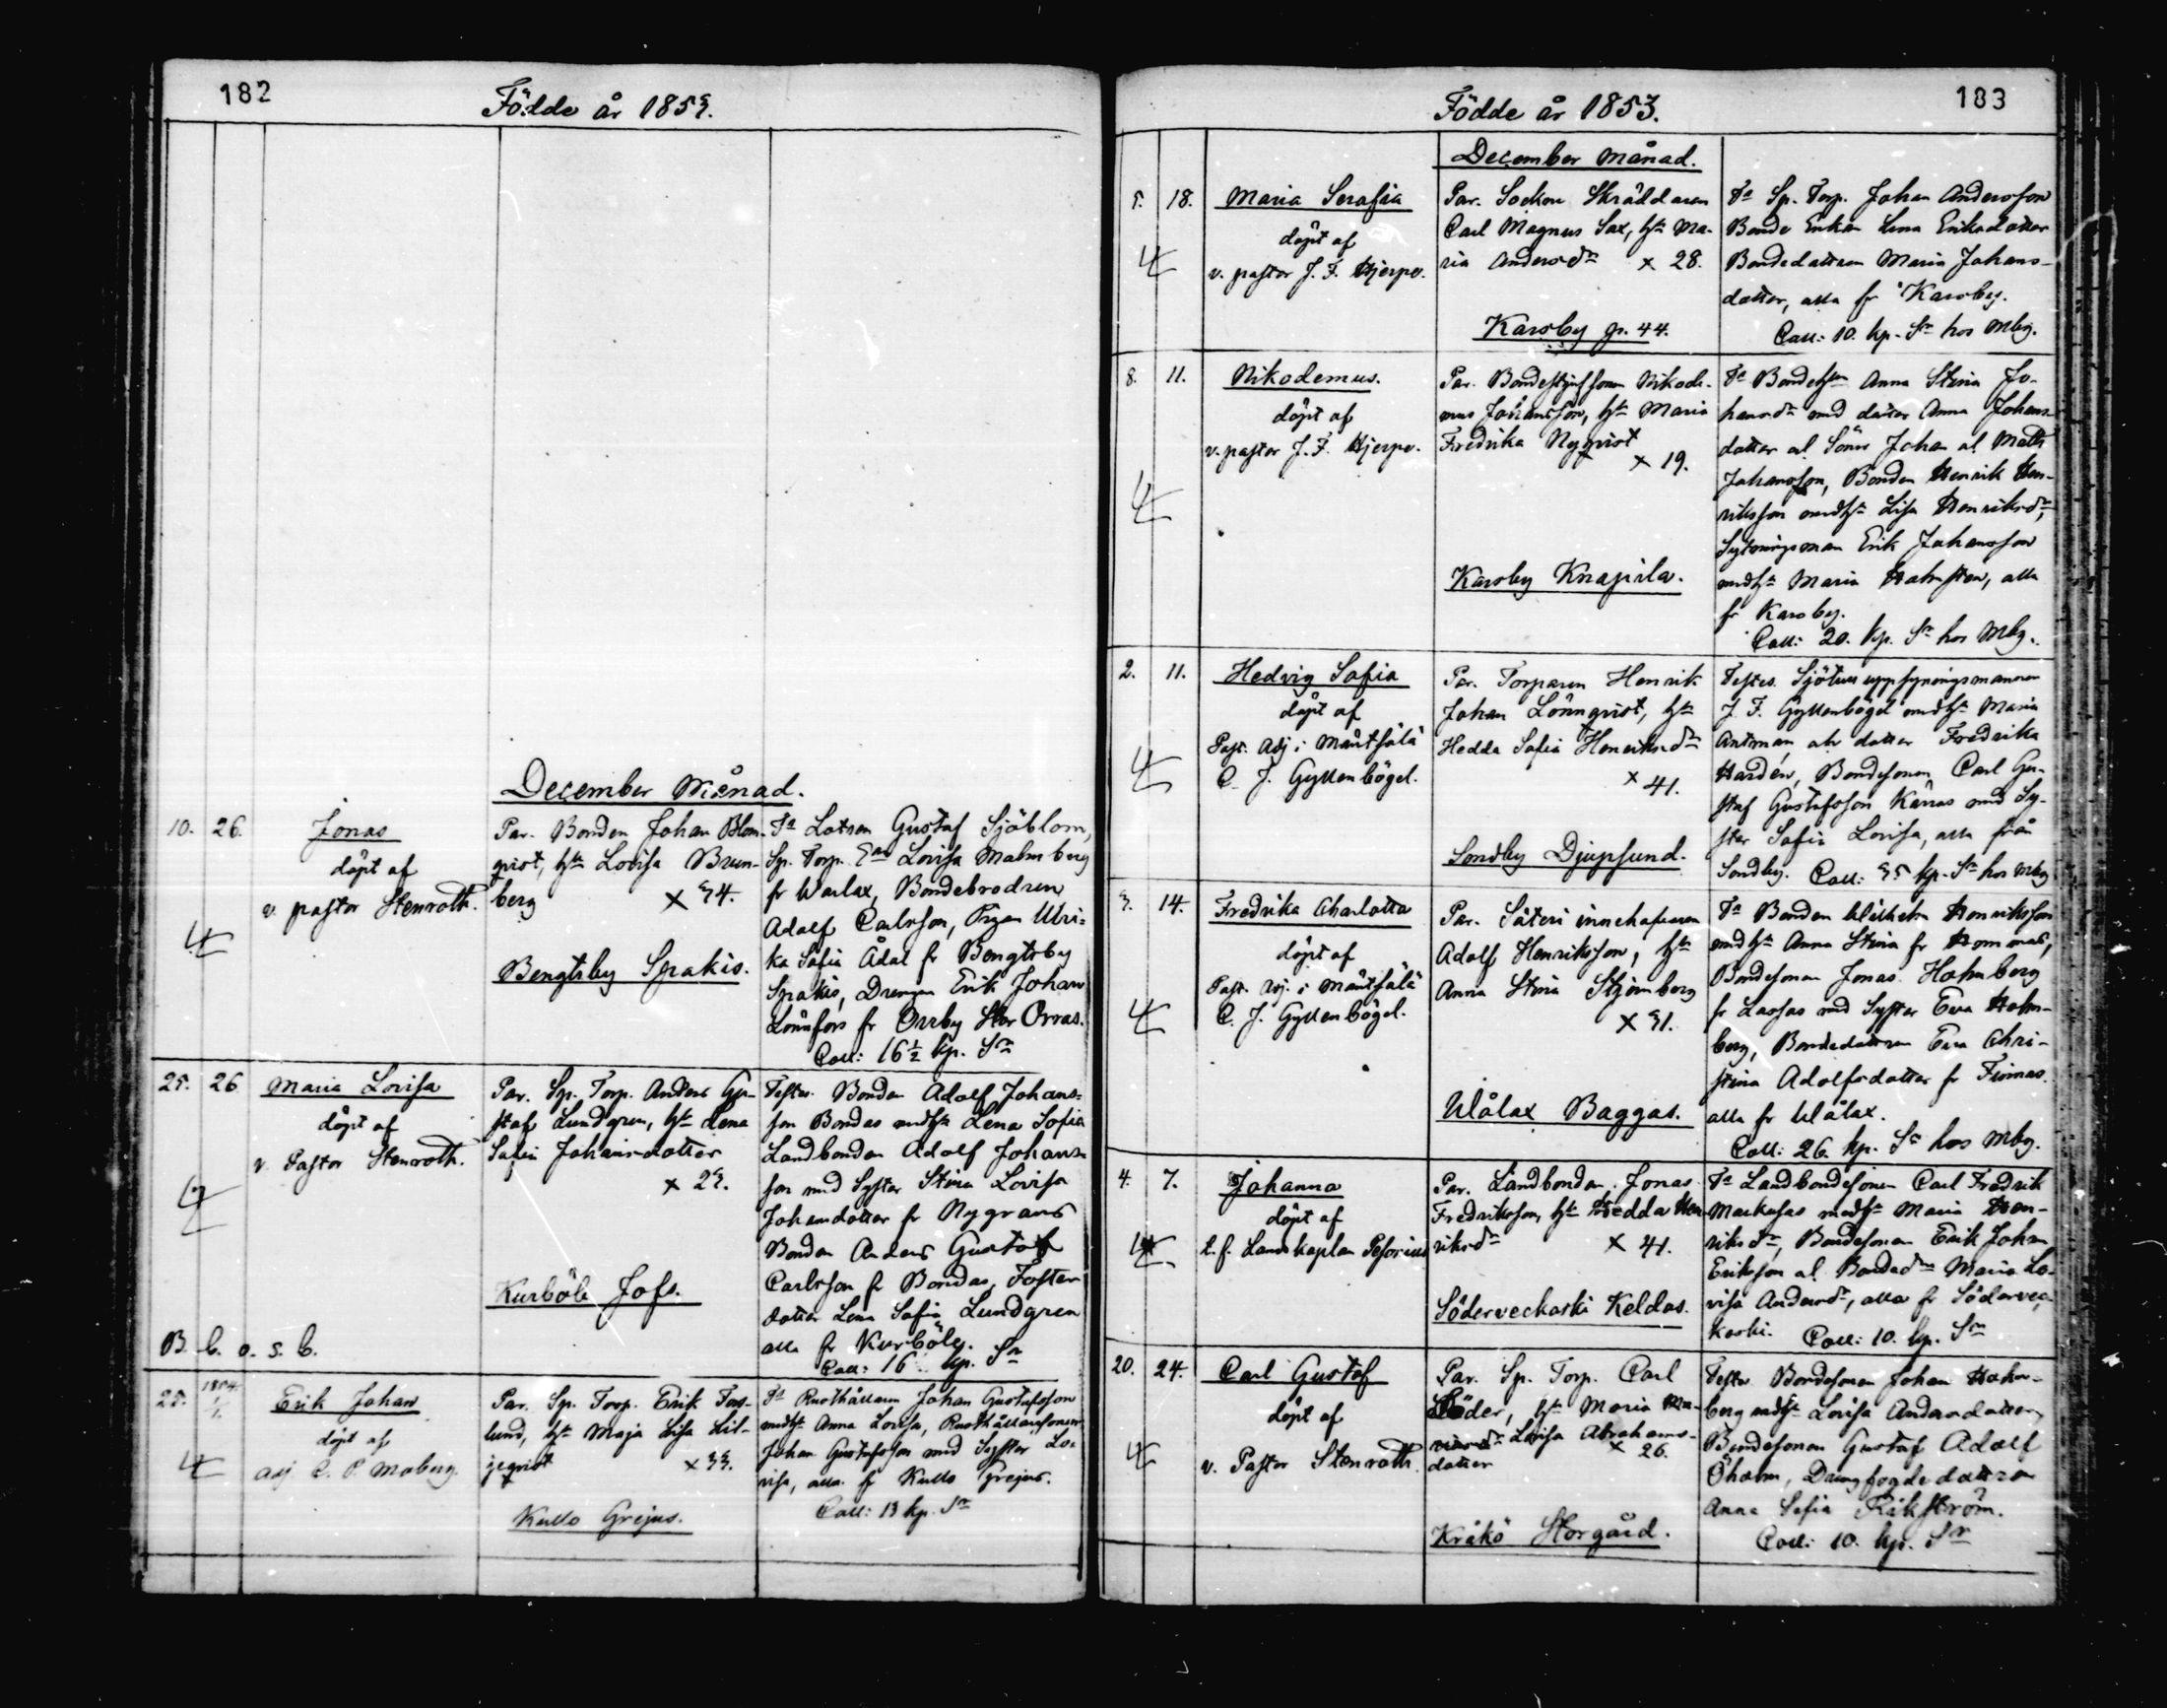 182
Födde år 1853.
December Månad.
10. 26.
Jonas
döpt af
v. pastor Stenroth.
Par. Bonden Johan Blom-
qvist, h. Lovisa Brun-
berg x 34.
Bengtsby Spakis.
Ta Lotsen Gustaf Sjöblom,
Sp. Torp. Lovisa Malmberg
fr Warlax, Bondebrodren
Adolf Carlsson, Pigan Ulri-
ka Sofia Ådal fr Bengtsby
Spakis, Drengen Erik Johan
Lönnfors fr Orrby Stor Orras.
Coll: 16 1/2 kp. Sr
25. 26
Maria Lovisa
döpt af
v. Pastor Stenroth.
Par. Sp. Torp. Anders Gu-
staf Lundgren, h. Lena
Sofia Johansdotter
x 23.
Kurböle Jofs.
Testes. Bonden Adolf Johans-
son Bondas med h. Lena Sofia
Landbonden Adolf Johans-
son med Syster Stina Lovisa
Johansdotter fr Nygrans
Bonden Anders Gustaf
Carlsson fr Bondas, Foster
dotter Lena Sofia Lundgren
alla fr Kurböle.
Coll: 16 kp. Sr
B. b. o. s. b.
25. 1854. 1/1.
Erik Johan
döpt af
adj C. P. Moberg.
Par. Sp. Torp. Erik Fors-
lund, h. Maja Lisa Lil-
jeqvist x 33.
Kullo Grejus.
Ta Rusthållaren Johan Gustafsson
med h. Anna Lovisa, Rusthållaresonen
Johan Gustafsson med Syster Lo-
visa, alla fr Kullo Grejus.
Coll: 13 kp. Sr
183
Födde år 1853.
December månad.
5. 18.
Maria Serafia
döpt af
v. pastor J. F. Hjerpe.
Par. Socken Skräddaren
Carl Magnus Sax, h. Ma-
ria Andersdr x 28.
Karsby p. 44.
Ta Sp. Torp. Johan Andersson
Bonde Enkan Lena Eriksdotter
Bondedottren Maria Johans-
dotter, alla fr Karsby.
Coll: 10. kp. Sr hos Mbg.
8. 11.
Nikodemus.
döpt af
v. pastor J. F. Hjerpe.
Par. Bondestjufsonen Nikode-
mus Johansson, h. Maria
Fredrika Nyqvist
x 19.
Karsby Knapila.
Ta Anna Stina Jo-
hansdr med dotter Anna Johans-
dotter al. Söner Johan al. Matts
Johansson, Bonden Henrik Hen-
riksson med h. Lisa Henriksdr,
Sytningsman Erik Johansson
med h. Maria Holmsten, alla
fr Karsby.
Coll: 20. kp. Sr hos Mbg.
2. 11.
Hedvig Sofia
döpt af
Past. Adj i Mäntsälä
C. J. Gyllenbögel.
Par. Torparen Henrik
Johan Lönnqvist, h.
Hedda Sofia Henriksdr
x 41.
Sondby Djupsund.
Testes. Sjötulluppsyningsmannen
J. F. Gyllenbögel med h. Maria
Antman, dotter Fredrika
Hardén, Bondesonen Carl Gu-
staf Gustafsson Kärras med Sy-
ster Sofia Lovisa, alla från
Sondby. Coll: 35 kp. Sr hos Mbg
3. 14.
Fredrika Charlotta
döpt af
Past. Adj. i Mäntsälä
C. J. Gyllenbögel.
Par. Säteri innehafvaren
Adolf Henriksson, h.
Anna Stina Stjernberg
x 31.
Wålax Baggas.
Ta Bonden Wilhelm Henriksson
med h. Anna Stina fr Hommas,
Bondesonen Jonas Holmberg
fr Lassas med Syster Eva Holm-
berg, Bondedottren Eva Chri-
stina Adolfsdotter fr Finnas.
alla fr Wålax.
Coll: 26. kp. Sr hos Mbg.
4. 7.
Johanna
döpt af
t. f. Landskaplan Pesonius
Par. Landbonden Jonas
Fredriksson, h. Hedda Hen-
riksdr x 41.
Söderveckoski Keldas.
Ta Landbondesonen Carl Fredrik
Markusas med h. Maria Hen-
riksdr, Bondesonen Erik Johan
Eriksson al. Bondedr Maria Lo-
visa Andersdr, alla fr Södervec-
koski. Coll: 10. kp. Sr
20. 24.
Carl Gustaf
döpt af
v. Pastor Stenroth.
Par. Sp. Torp. Carl
Söder, h. Maria
Lovisa Abrahams-
dotter x 26.
Kråkö Storgård.
Testes Bondesonen Johan Holm-
berg med h. Lovisa Andersdotter,
Bondesonen Gustaf Adolf
Öholm, Drengfogdedottren
Anna Sofia Rikström.
Coll: 10. kp. Sr